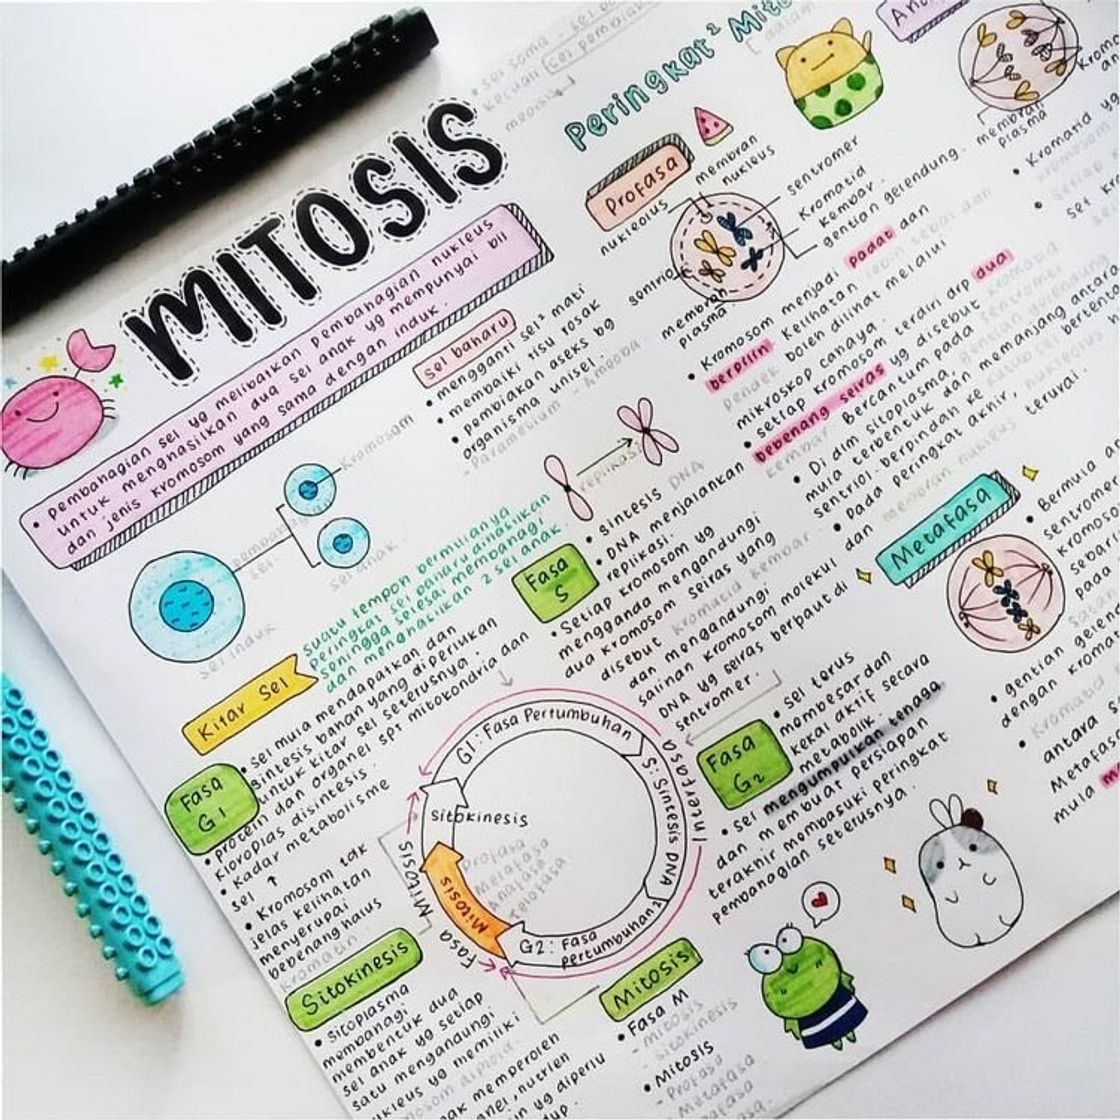 MITOSIS
• pembahagian sel yg melibatkan pembahagian nukleus
untuk menghasilkan dua sel anak yg mempunyai bil
dan jenis kromosom yang sama dengan induk.
sel baharu
• mengganti sel² mati
• membaiki tisu rosak
• pembiakan aseks bg
organisma unisel.
- Paramesium - Amoeba.
Kromosom
sel induk
sel anak
Kitar Sel
suatu tempoh bermulanya
peringkat sel baharu dihasilkan
sehingga selesai membahagi
dan menghasilkan 2 sel anak.
Fasa
G1
• sel mula mendapatkan dan
sintesis bahan yang diperlukan
untuk kitar sel seterusnya.
• protein dan organel spt mitokondria dan
kloroplas disintesis.
• Kadar metabolisme
sel ↑
• Kromosom tak
jelas kelihatan
menyerupai
bebenang halus
kromatin.
replikasi
Fasa
S
• sintesis DNA
• DNA menjalankan
replikasi.
• Setiap kromosom yg
mengganda mengandungi
dua kromosom seiras yang
disebut kromatid kembar
dan mengandungi
salinan kromosom molekul
DNA yg seiras dan
berpaut di
sentromer.
Fasa
G2
• sel terus
membesar dan
kekal aktif secara
metabolik.
• sel mengumpulkan tenaga
dan membuat persiapan
terakhir memasuki peringkat
pembahagian seterusnya.
G1: Fasa Pertumbuhan
S: Sintesis DNA
Interfasa
G2: Fasa
pertumbuhan
Mitosis
sitokinesis
Profasa
Metafasa
Anafasa
Telofasa
Mitosis
Fasa
Sitokinesis
• sitoplasma
membahagi
membentuk dua
sel anak yg setiap
satu mengandungi
nukleus yg memiliki
Mitosis
• Fasa M
- mitosis
- sitokinesis
• Mitosis
- Profasa
- Metafasa
Peringkat² Mito
Profasa
membran
nukleus
nukleolus
sentromer
Kromatid
kembar.
gentian gelendong.
sentriol
membran
plasma
• Kromosom menjadi padat dan
berpilin. Kelihatan lebih
pendek boleh dilihat melalui
mikroskop cahaya.
• setiap kromosom terdiri drp dua
bebenang seiras yg disebut kromatid
kembar bercantum pada sentromer
• Di dlm sitoplasma, gentian gelendong
mula terbentuk dan memanjang antara
sentriol. berpindah ke
• Pada peringkat akhir, nukleolus
dan membran nukleus terurai.
membran
plasma
• Kromatid yg
Metafasa
• Bermula
sentromer
• gentian
dengan
• Kromatid
antara
Metafasa
mula